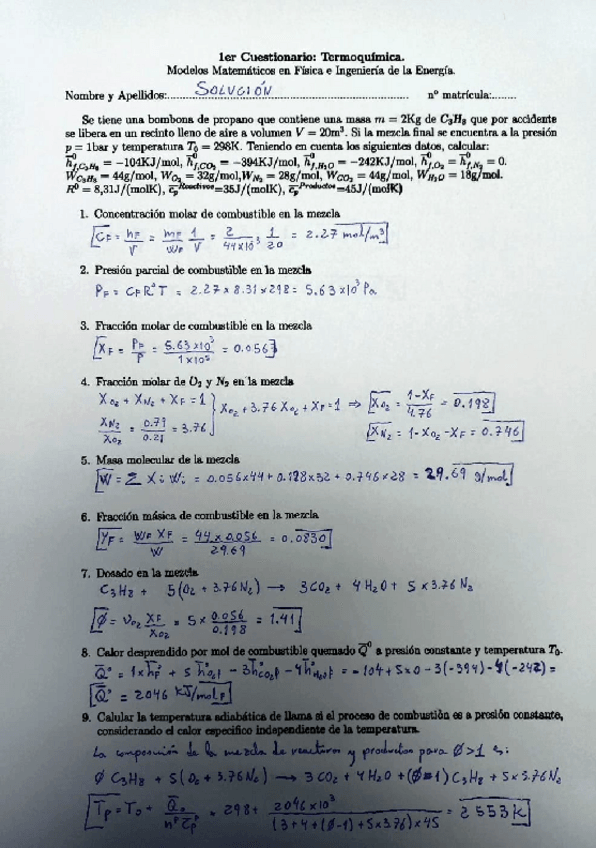 1er Cuestionario: Termoquímica.
Modelos Matemáticos en Física e Ingeniería de la Energía.
Nombre y Apellidos:....SOLUCIÓN.... nº matrícula:.......
Se tiene una bombona de propano que contiene una masa m = 2Kg de C₃H₈ que por accidente
se libera en un recinto lleno de aire a volumen V = 20m³. Si la mezcla final se encuentra a la presión
p = 1bar y temperatura T₀ = 298K. Teniendo en cuenta los siguientes datos, calcular:
h̄⁰f,C₃H₈ = −104KJ/mol, h̄⁰f,CO₂ = −394KJ/mol, h̄⁰f,H₂O = −242KJ/mol, h̄⁰f,O₂ = h̄⁰f,N₂ = 0.
W_C₃H₈ = 44g/mol, W_O₂ = 32g/mol, W_N₂ = 28g/mol, W_CO₂ = 44g/mol, W_H₂O = 18g/mol.
R⁰ = 8,31J/(molK), c̄p^Reactivos=35J/(molK), c̄p^Productos=45J/(molK)
1. Concentración molar de combustible en la mezcla
C_F = n_F/V = m_F/W_F 1/V = 2/44×10⁻³ · 1/20 = 2.27 mol/m³
2. Presión parcial de combustible en la mezcla
P_F = C_F R⁰ T = 2.27 × 8.31 × 298 = 5.63 × 10³ Pa
3. Fracción molar de combustible en la mezcla
X_F = P_F/P = 5.63 × 10³/1 × 10⁵ = 0.056
4. Fracción molar de O₂ y N₂ en la mezcla
X_O₂ + X_N₂ + X_F = 1 } X_O₂ + 3.76 X_O₂ + X_F = 1 ⇒ X_O₂ = 1-X_F/4.76 = 0.198
X_N₂/X_O₂ = 0.79/0.21 = 3.76 X_N₂ = 1 - X_O₂ - X_F = 0.746
5. Masa molecular de la mezcla
W = Σ Xi Wi = 0.056×44 + 0.198×32 + 0.746×28 = 29.69 g/mol
6. Fracción másica de combustible en la mezcla
Y_F = W_F X_F/W = 44 × 0.056/29.69 = 0.0830
7. Dosado en la mezcla
C₃H₈ + 5(O₂ + 3.76 N₂) → 3CO₂ + 4H₂O + 5 × 3.76 N₂
Ø = ν_O₂ X_F/X_O₂ = 5 × 0.056/0.198 = 1.41
8. Calor desprendido por mol de combustible quemado Q̄⁰ a presión constante y temperatura T₀.
Q̄⁰ = 1×h̄⁰f + 5 h̄⁰O₂f − 3h̄⁰CO₂f − 4h̄⁰H₂Of = −104 + 5×0 − 3(−394) − 4(−242) =
Q̄⁰ = 2046 KJ/mol_F
9. Calular la temperatura adiabática de llama si el proceso de combustión es a presión constante,
considerando el calor específico independiente de la temperatura.
La composición de la mezcla de reactivos y productos para Ø>1 es:
Ø C₃H₈ + 5(O₂ + 3.76N₂) → 3CO₂ + 4H₂O + (Ø-1)C₃H₈ + 5×3.76N₂
Tp = T₀ + Q̄₀/nᴾ c̄pᴾ = 298 + 2046 ×10³/(3+4+(Ø-1)+5×3.76)×45 = 2553K